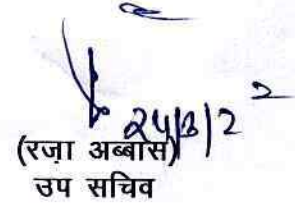 24/3/22
(रज़ा अब्बास)
उप सचिव